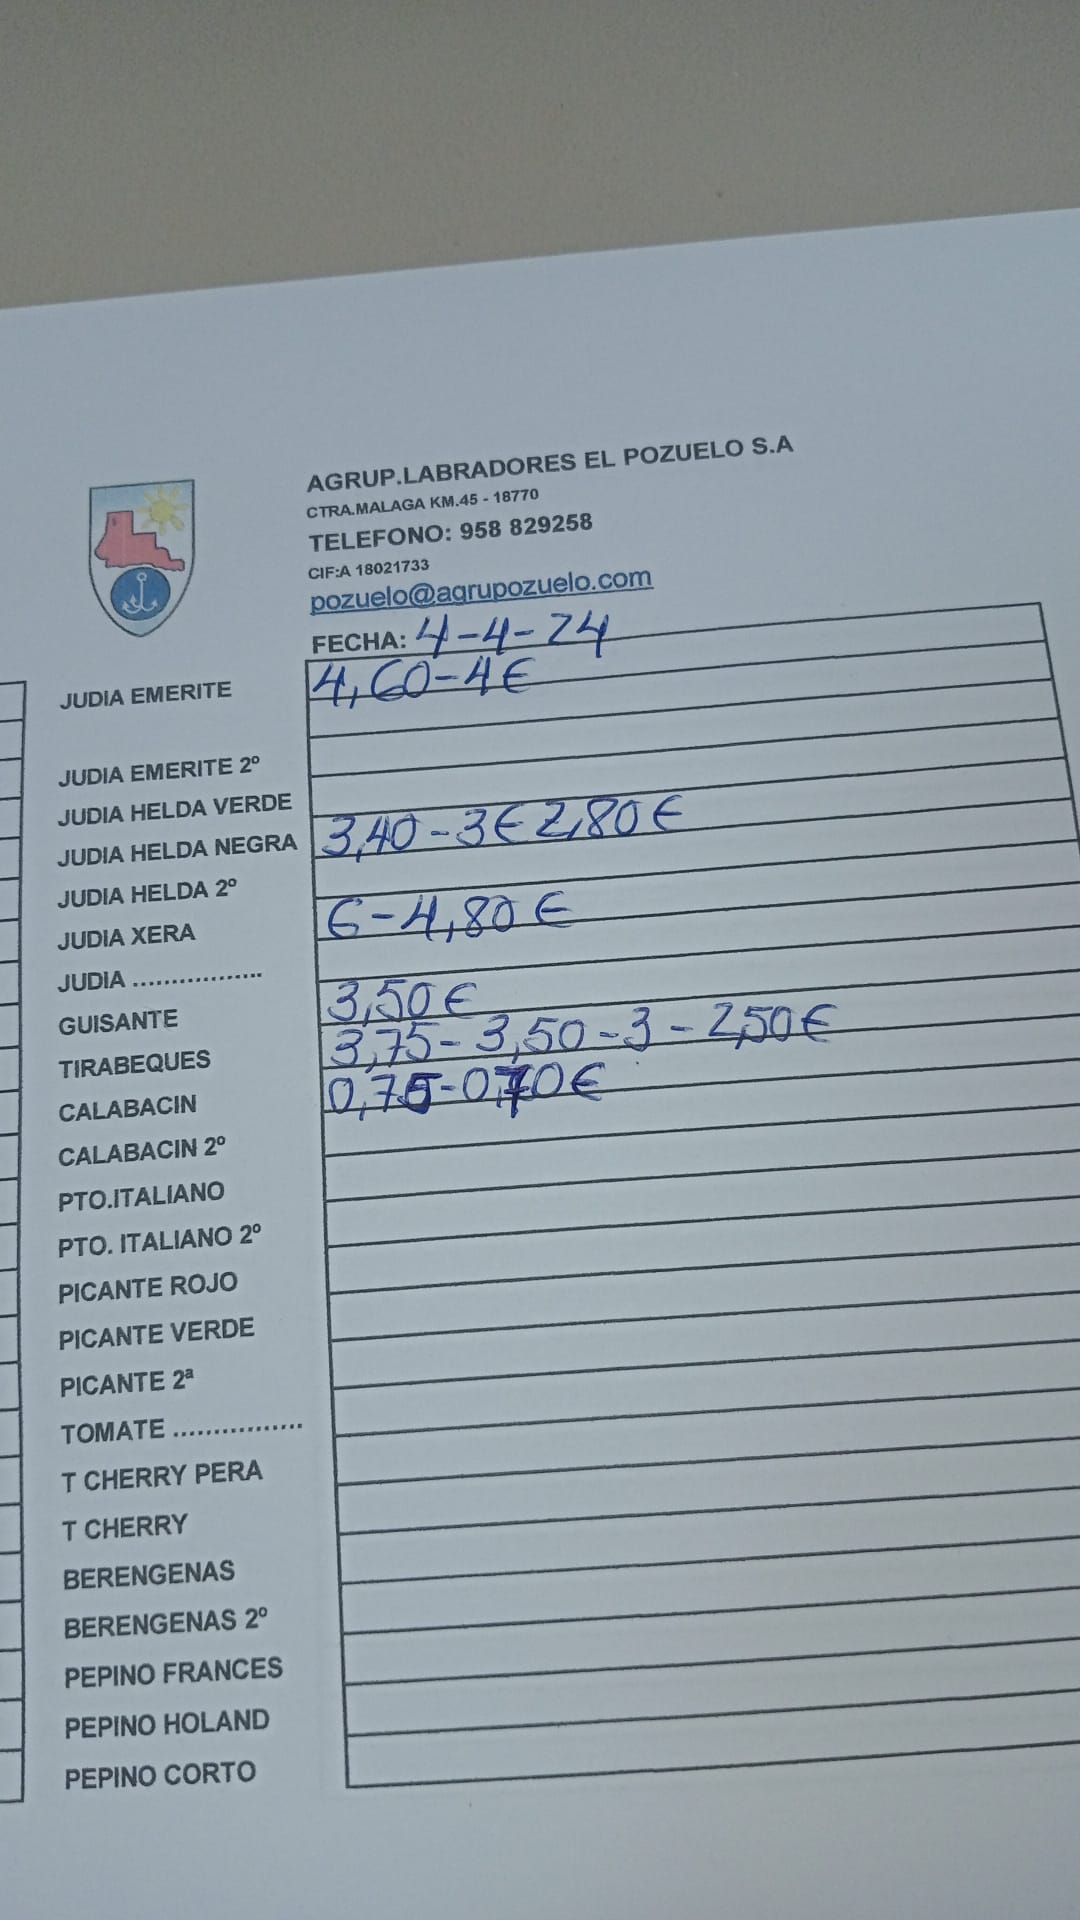 AGRUP.LABRADORES EL POZUELO S.A
CTRA.MALAGA KM.45 - 18770
TELEFONO: 958 829258
CIF:A 18021733
pozuelo@agrupozuelo.com
FECHA: 4-4-24
JUDIA EMERITE 4,60-4€
JUDIA EMERITE 2º
JUDIA HELDA VERDE
JUDIA HELDA NEGRA 3,40-3€ 2,80€
JUDIA HELDA 2º
JUDIA XERA 6-4,80€
JUDIA .................
GUISANTE 3,50€
TIRABEQUES 3,75-3,50-3-2,50€
CALABACIN 0,75-0,70€
CALABACIN 2º
PTO.ITALIANO
PTO. ITALIANO 2º
PICANTE ROJO
PICANTE VERDE
PICANTE 2ª
TOMATE ................
T CHERRY PERA
T CHERRY
BERENGENAS
BERENGENAS 2º
PEPINO FRANCES
PEPINO HOLAND
PEPINO CORTO